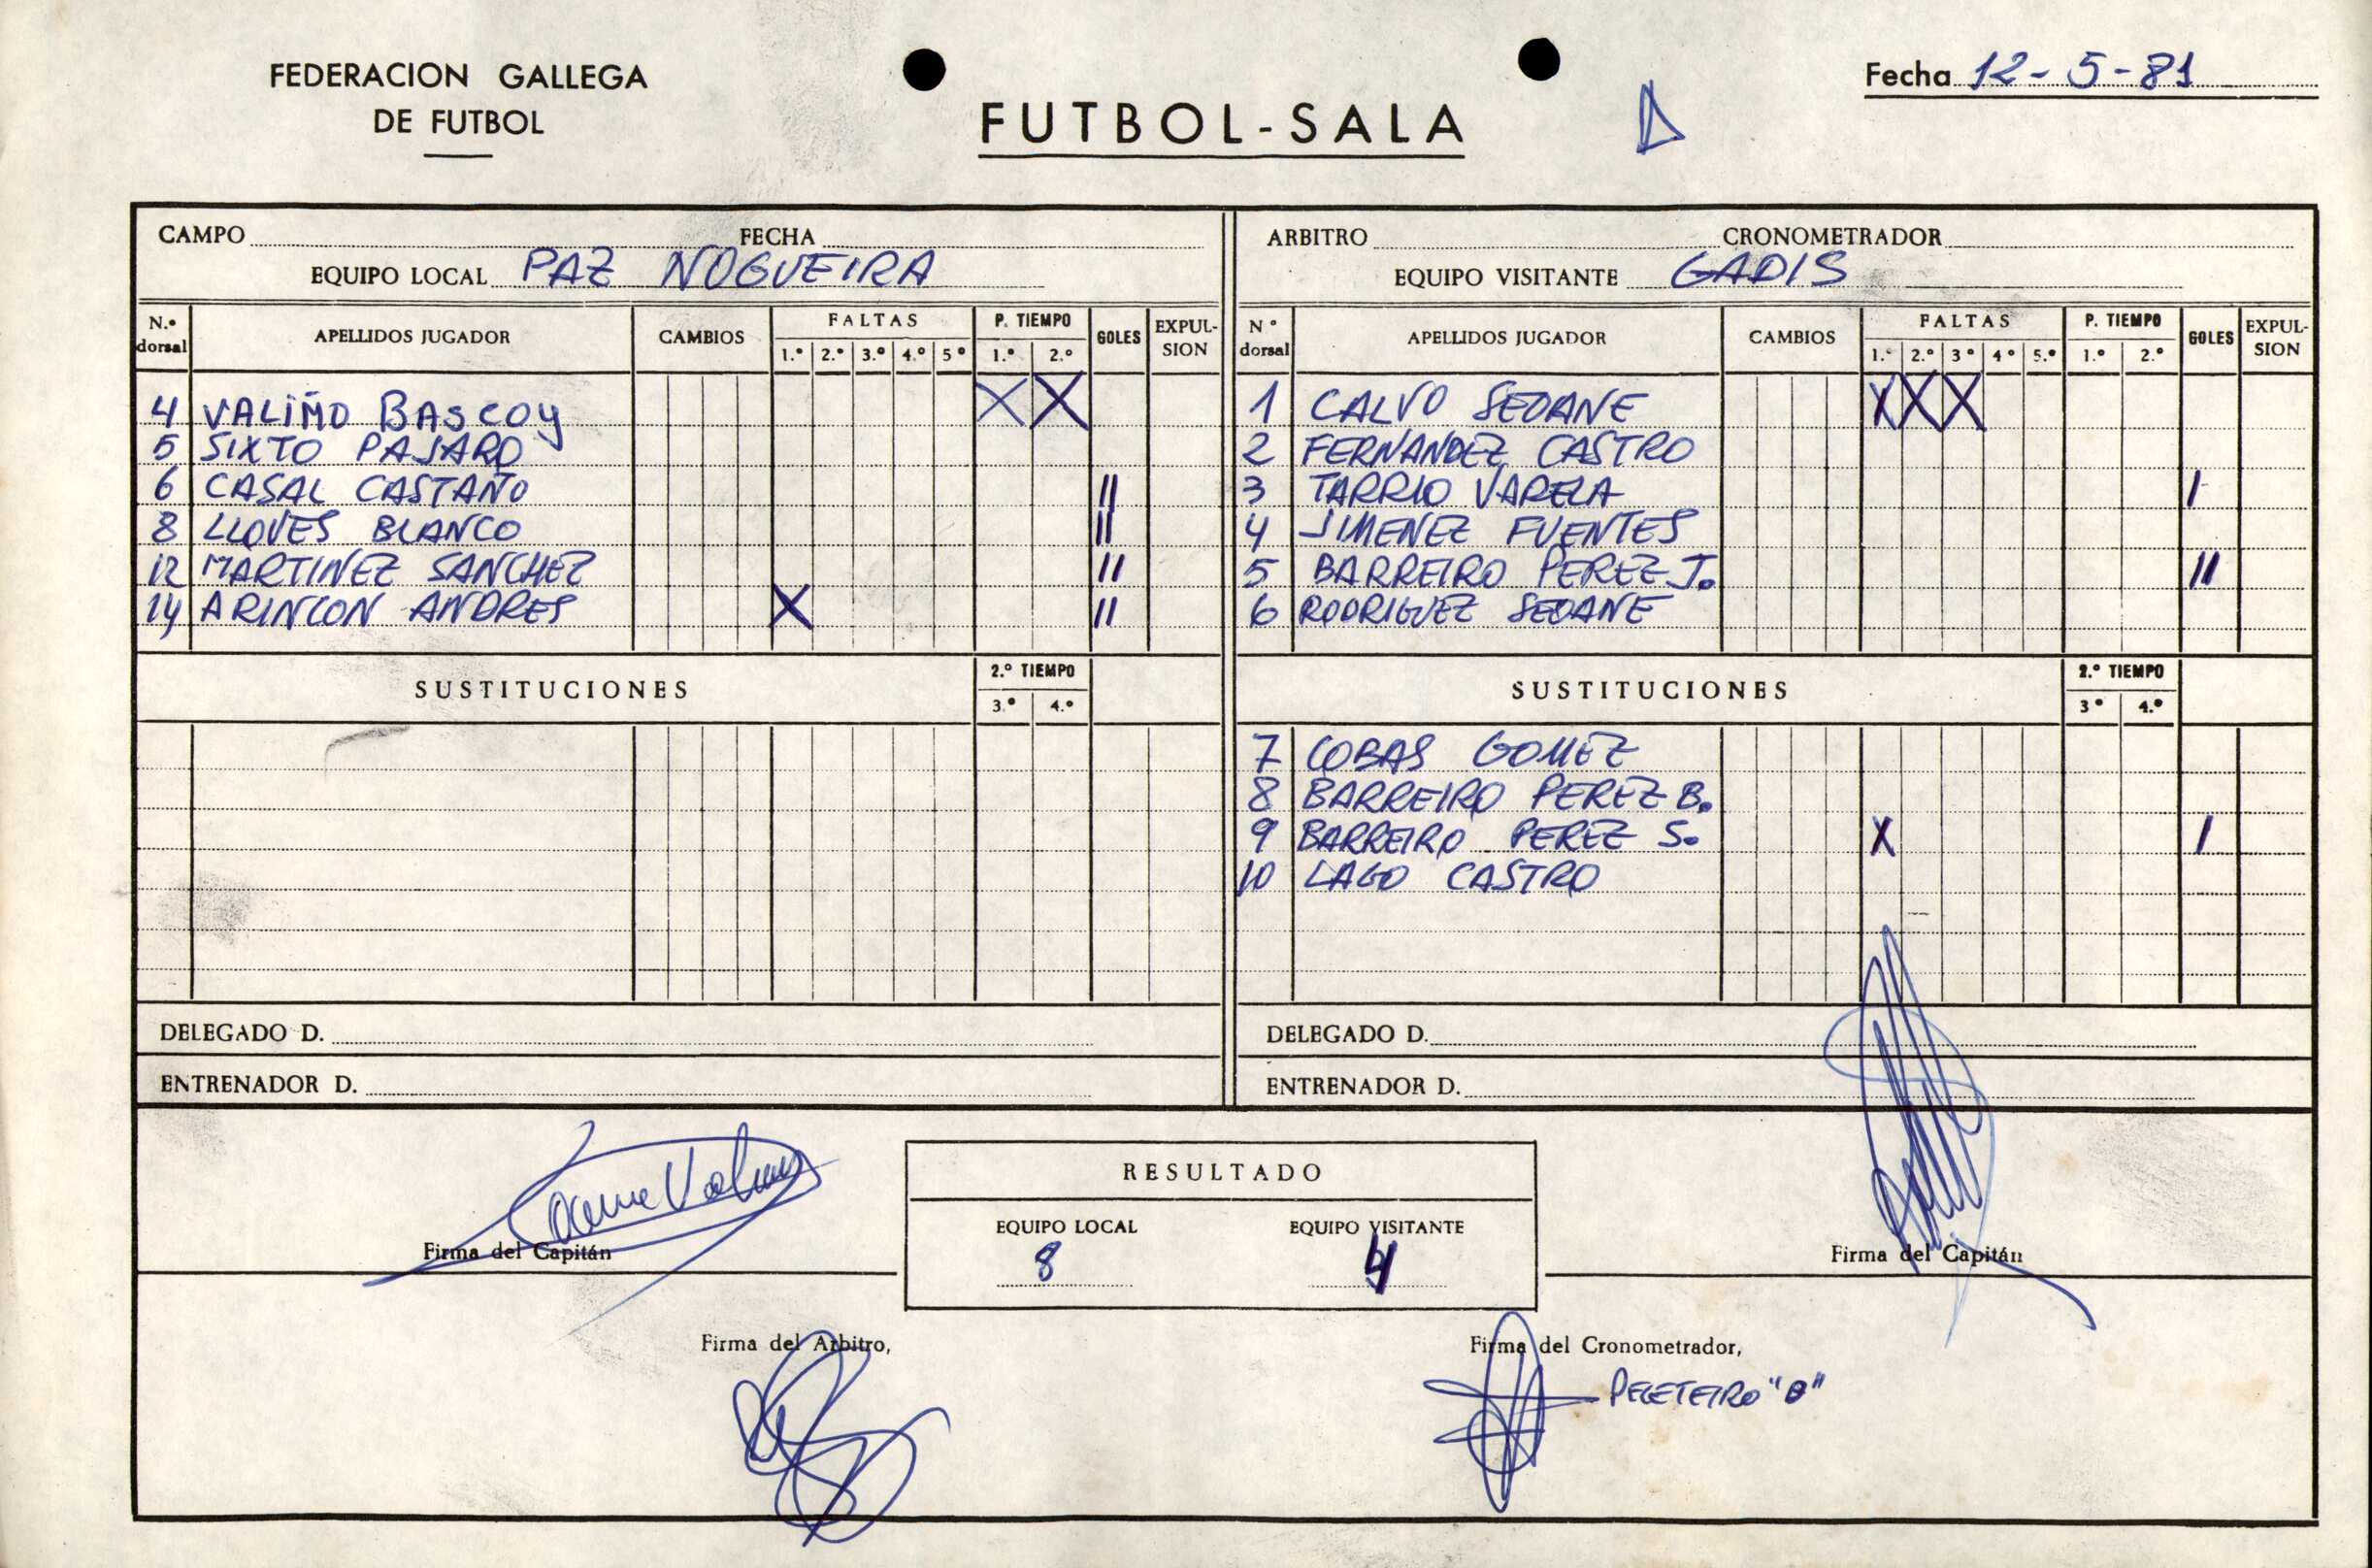 FEDERACION GALLEGA
DE FUTBOL
FUTBOL-SALA
Fecha 12-5-81
CAMPO FECHA
EQUIPO LOCAL PAZ NOGUEIRA
ARBITRO CRONOMETRADOR
EQUIPO VISITANTE GADIS
N.º dorsal APELLIDOS JUGADOR CAMBIOS FALTAS 1.º 2.º 3.º 4.º 5º P. TIEMPO 1.º 2.º GOLES EXPUL-SION
4 VALIÑO BASCOY X X
5 SIXTO PAJARO
6 CASAL CASTAÑO II
8 LLOVES BLANCO II
12 MARTINEZ SANCHEZ II
14 ARINCON ANDRES X II
SUSTITUCIONES 2.º TIEMPO
3.º 4.º
N º dorsal APELLIDOS JUGADOR CAMBIOS FALTAS 1.º 2.º 3º 4º 5.º P. TIEMPO 1.º 2.º GOLES EXPUL-SION
1 CALVO SEOANE X X X
2 FERNANDEZ CASTRO
3 TARRIO VARELA I
4 JIMENEZ FUENTES
5 BARREIRO PEREZ J. II
6 RODRIGUEZ SEOANE
SUSTITUCIONES 2.º TIEMPO
3º 4.º
7 COBAS GOMEZ
8 BARREIRO PEREZ B.
9 BARREIRO PEREZ S. X I
10 LAGO CASTRO
DELEGADO D.
ENTRENADOR D.
DELEGADO D.
ENTRENADOR D.
Firma del Capitán
RESULTADO
EQUIPO LOCAL EQUIPO VISITANTE
8 4
Firma del Capitán
Firma del Arbitro,
Firma del Cronometrador,
PELETEIRO "B"